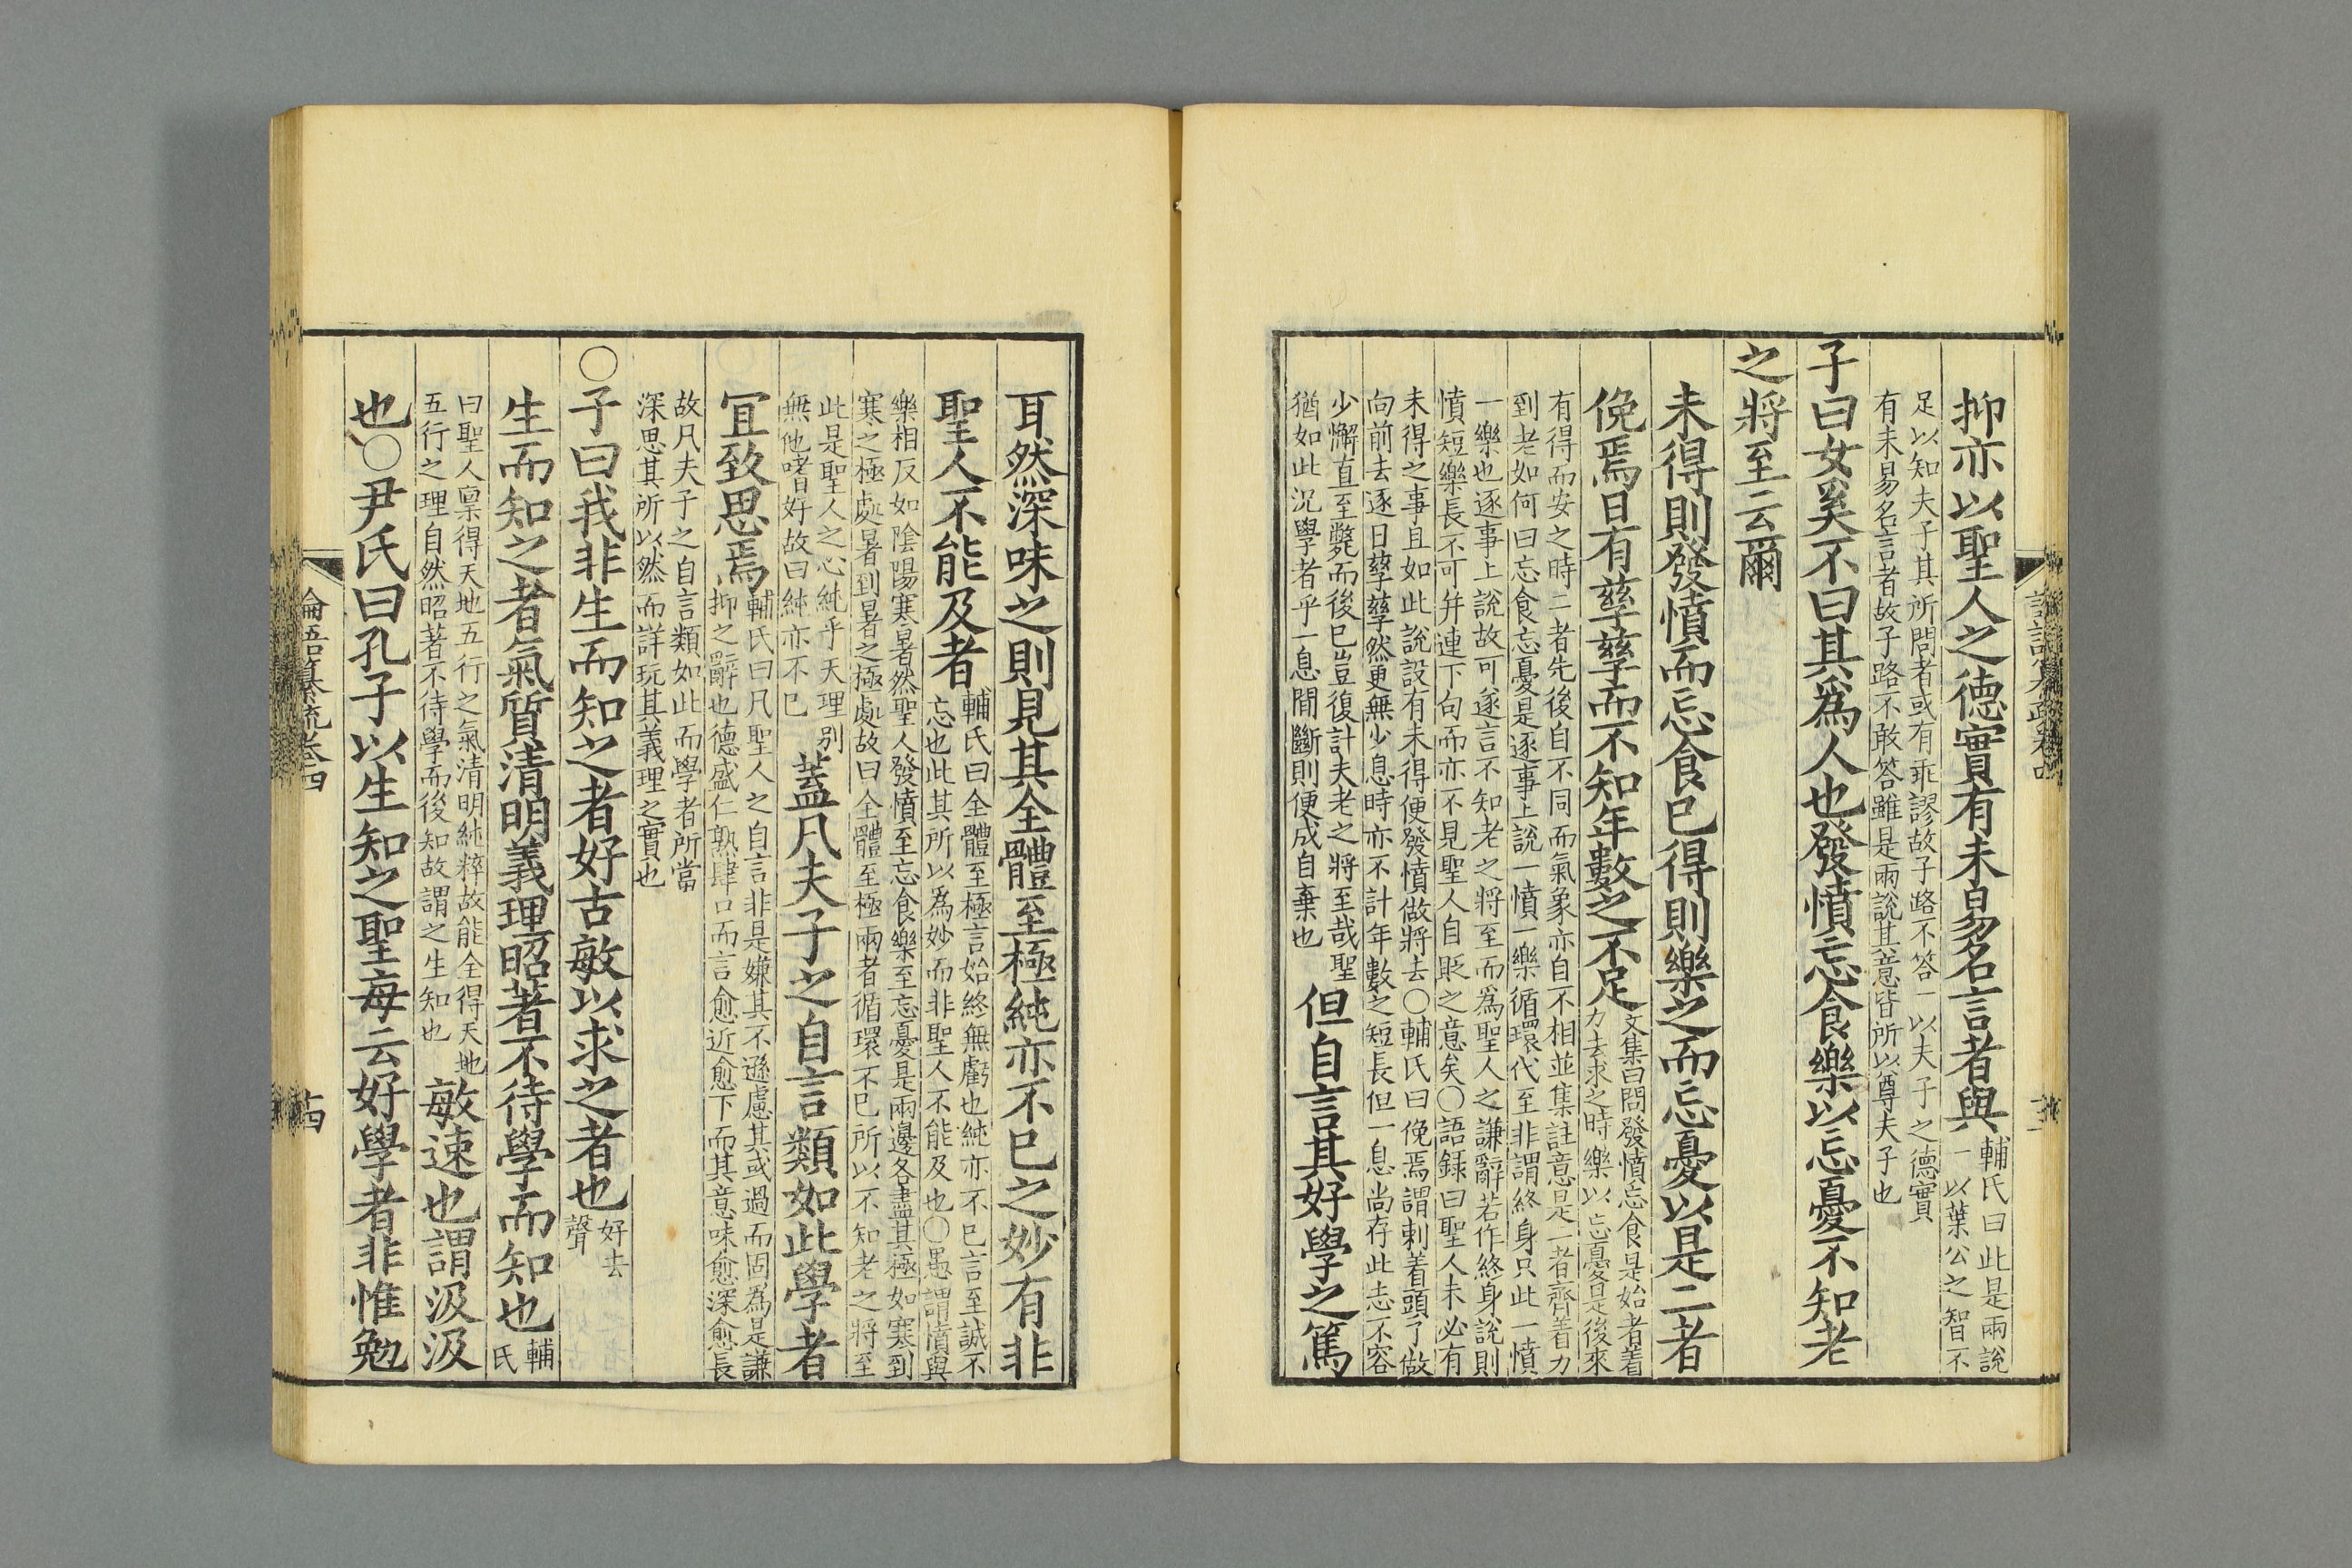 抑亦以聖人之德實有未易名言者與
輔氏曰此是兩說
一以葉公之智不
足以知夫子其所問者或有乖謬故子路不答一以夫子之德實
有未易名言者故子路不敢答雖是兩說其意皆所以尊夫子也
子曰女奚不曰其爲人也發憤忘食樂以忘憂不知老
之將至云爾
未得則發憤而忘食已得則樂之而忘憂以是二者
俛焉日有孳孳而不知年數之不足
文集曰問發憤忘食是始者着
力去求之時樂以忘憂是後來
有得而安之時二者先後自不同而氣象亦自不相並集註意是二者齊着力
到老如何曰忘食忘憂是逐事上說一憤一樂循環代至非謂終身只此一憤
一樂也逐事上說故可遂言不知老之將至而爲聖人之謙辭若作終身說則
憤短樂長不可并連下句而亦不見聖人自貶之意矣○語録曰聖人未必有
未得之事且如此說設有未得便發憤做將去○輔氏曰俛焉謂刺着頭了做
向前去逐日孳孳然更無少息時亦不計年數之短長但一息尚存此志不容
少懈直至斃而後已豈復計夫老之將至哉聖
猶如此況學者乎一息間斷則便成自棄也
但自言其好學之篤
耳然深味之則見其全體至極純亦不已之妙有非
聖人不能及者
輔氏曰全體至極言始終無虧也純亦不已言至誠不
忘也此其所以爲妙而非聖人不能及也○愚謂憤與
樂相反如陰陽寒暑者然聖人發憤至忘食樂至忘憂是兩邊各盡其極如寒到
寒之極處暑到暑之極處故曰全體至極兩者循環不已所以不知老之將至
此是聖人之心純乎天理別
無他嗜好故曰純亦不已
蓋凡夫子之自言類如此學者
宜致思焉
輔氏曰凡聖人之自言非是嫌其不遜慮其或過而固為是謙
抑之辭也德盛仁熟肆口而言愈近愈下而其意味愈深愈長
故凡夫子之自言類如此而學者所當
深思其所以然而詳玩其義理之實也
○子曰我非生而知之者好古敏以求之者也
好去
聲
生而知之者氣質清明義理昭著不待學而知也
輔
氏
曰聖人稟得天地五行之氣清明純粹故能全得天地
五行之理自然昭著不待學而後知故謂之生知也
敏速也謂汲汲
也○尹氏曰孔子以生知之聖每云好學者非惟勉
論語纂疏卷四
十四